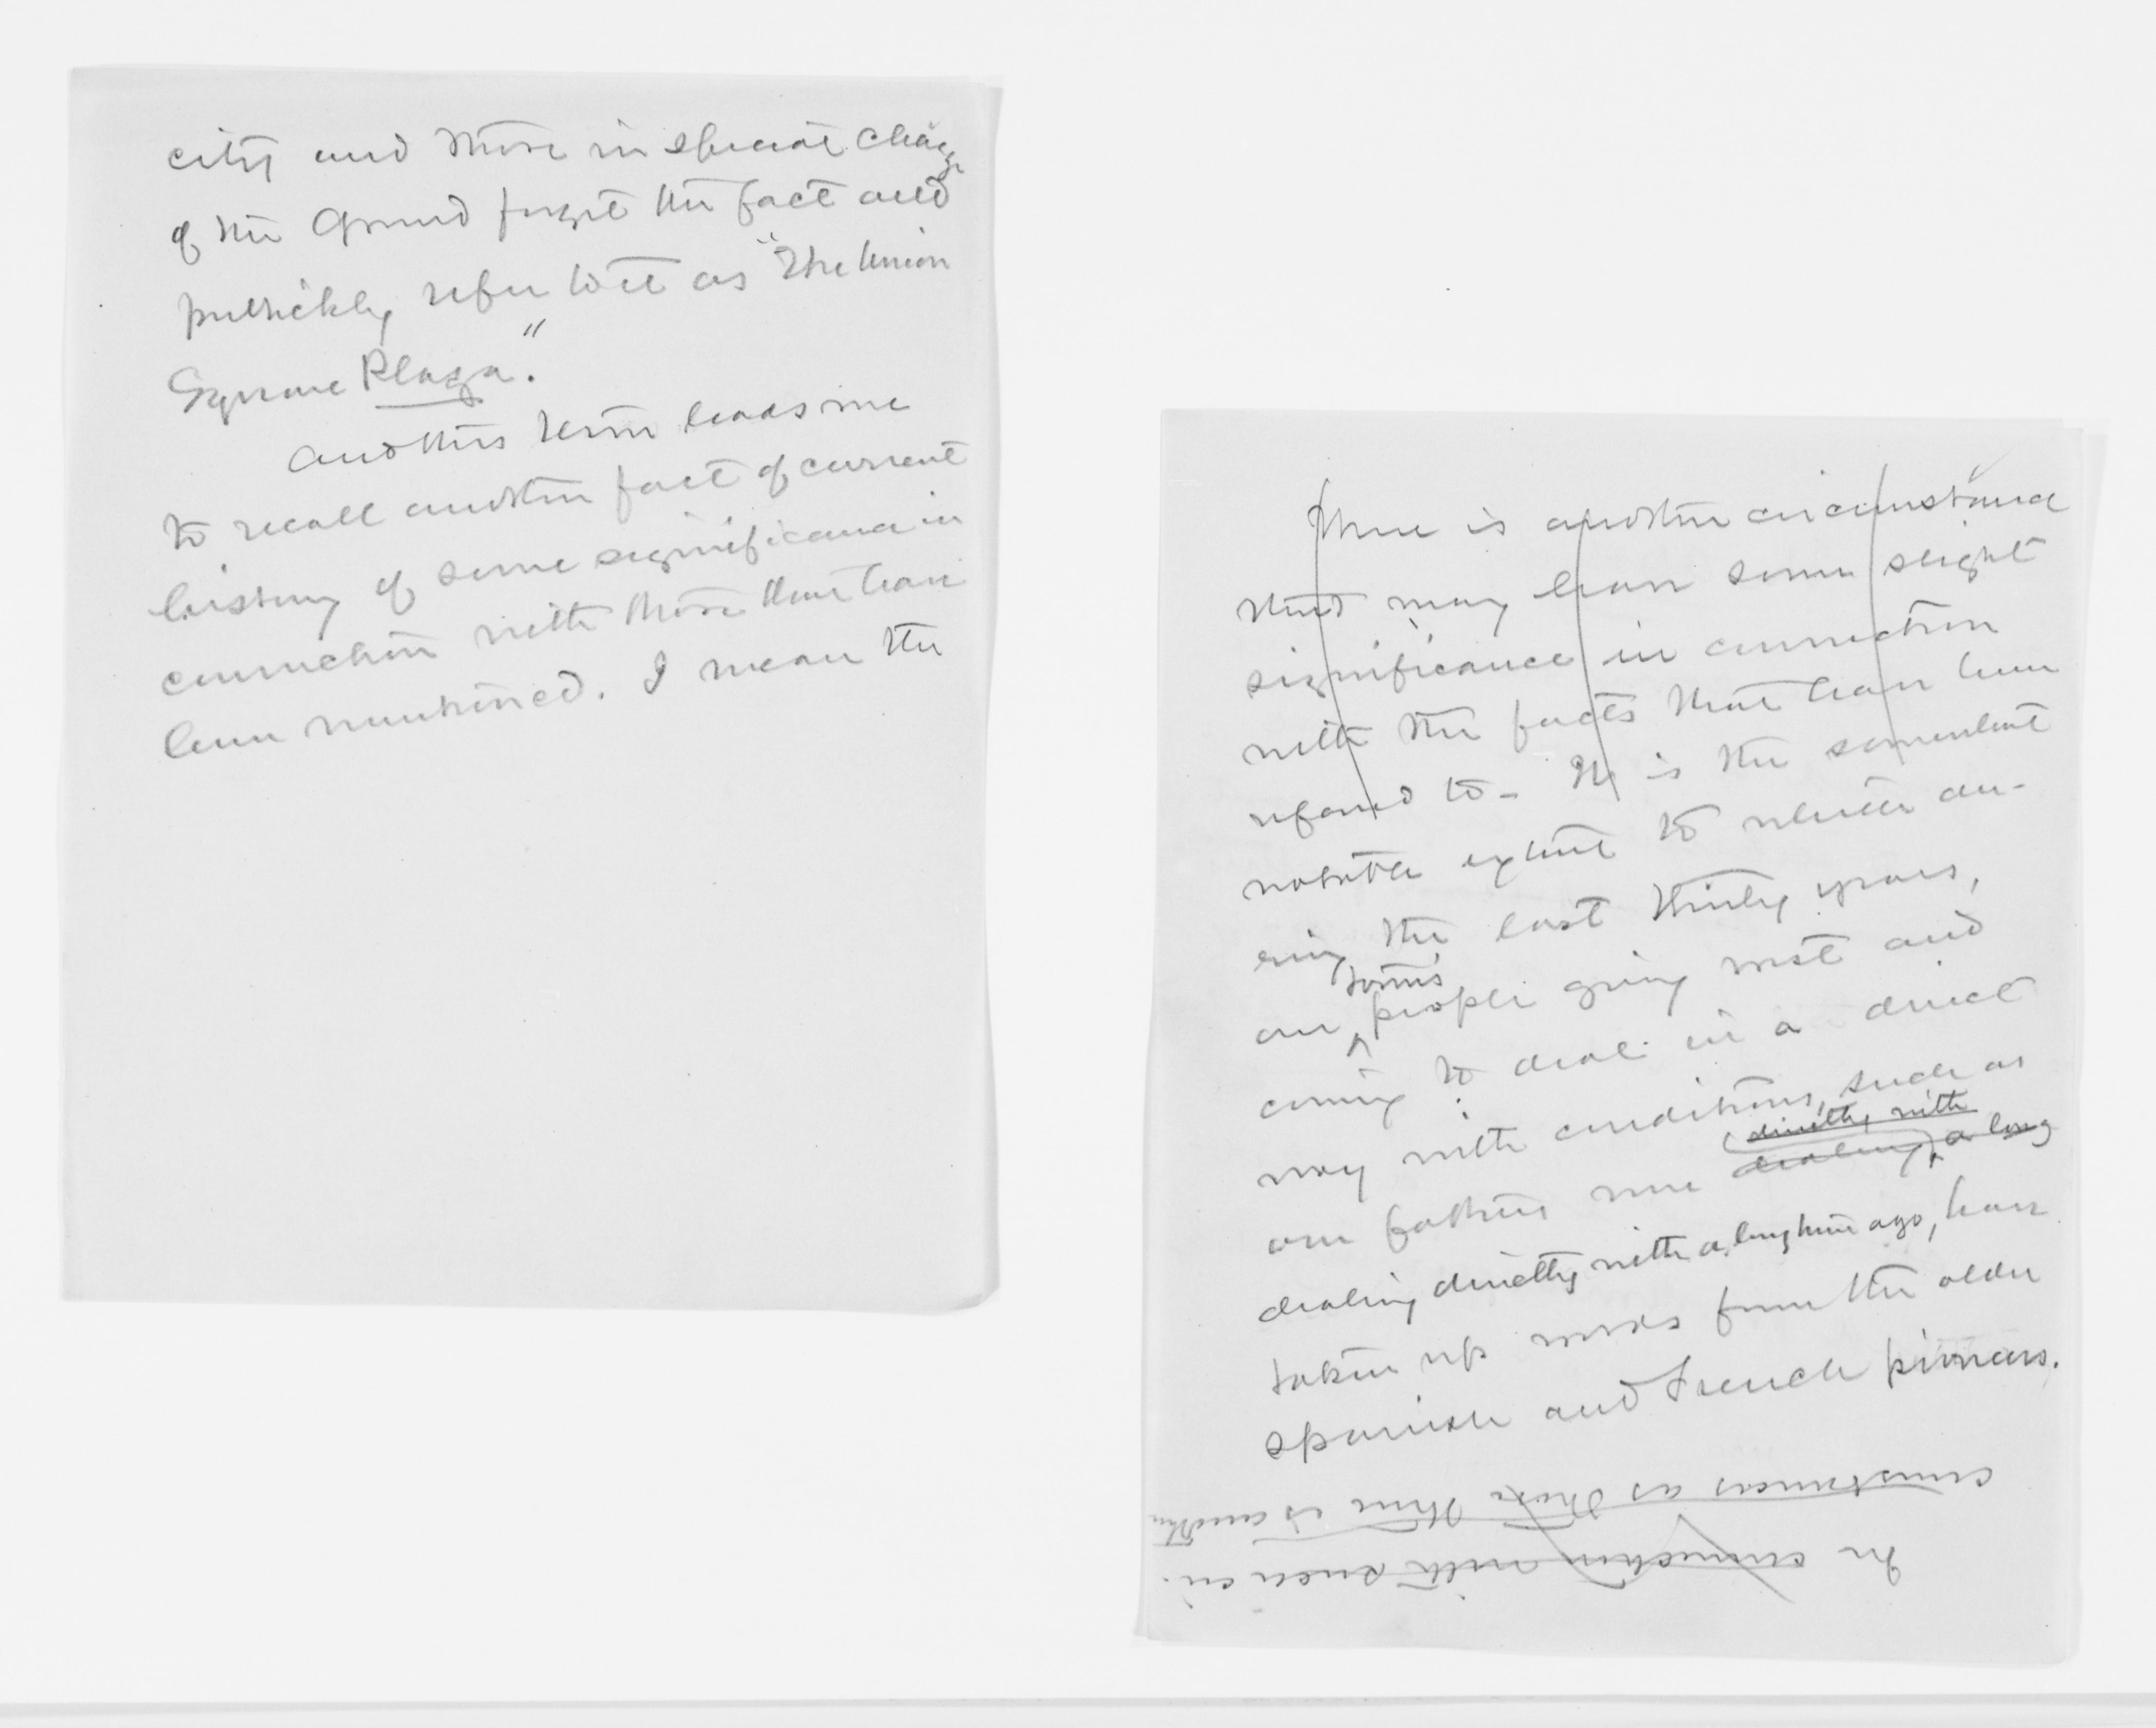 city and those in special charge
of the Ground forget the fact and
publickly refer to it as "The Union
Square Plaza."
Another term leads me
to recall another fact of current
history of some significance in
connection with those that have
been mentioned. I mean the
There is another circumstance
that may have some slight
significance in connection
with the facts that have been
refered to - It is the somewhat
notable extent to which du-
ring the last thirty years,
our towns people going west and
coming to deal in a direct
way with conditions, such as
(directly with
our fathers were dealing, a long
dealing directly with a long time ago, have
taken up words from the older
Spanish and French pioneers.
In connection with such cir-
cumstances as those there is another